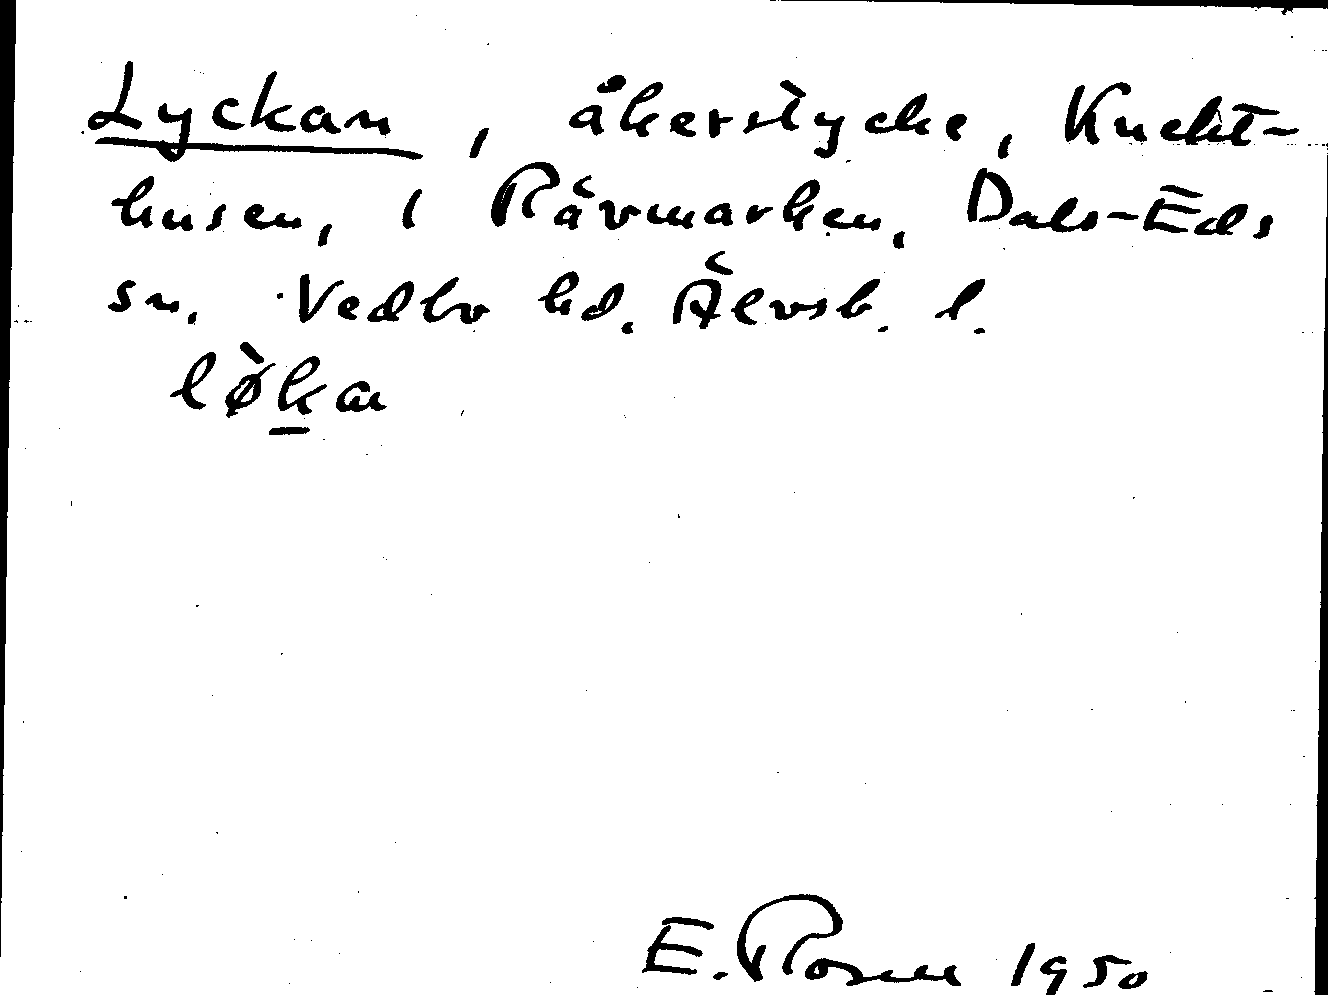 Lyckan, åkerstycke, Knekt-
husen, i Rävmarken, Dals-Eds
sn. Vedbo hd. Älvsb. l.
lø̀k̲an
E. Rosell 1950